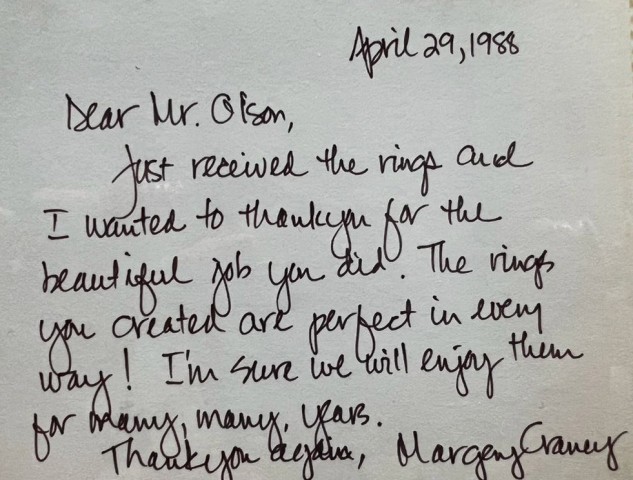 April 29, 1988
Dear Mr. Olson,
Just received the rings and
I wanted to thankyou for the
beautiful job you did. The rings
you created are perfect in every
way! I'm sure we will enjoy them
for many, many, years.
Thankyou again, Margery